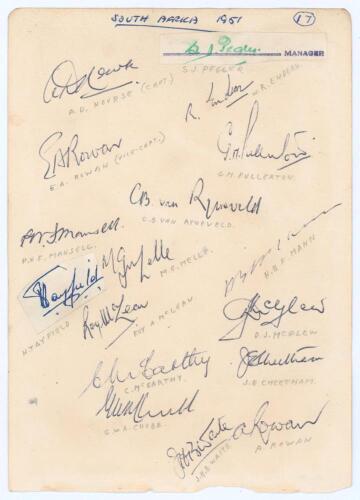 SOUTH AFRICA 1951 (17)
S. J. Pegler MANAGER
S.J. PEGLER
A.D. NOURSE (CAPT.)
W.R. ENDEAN.
E A Rowan
E.A. ROWAN (VICE-CAPT.)
G M Fullerton
G.M. FULLERTON
C B van Ryneveld
C.B. VAN RYNEVELD.
P N F Mansell.
P.N.F. MANSELL.
M G Melle
M.G. MELLE.
N.B.F. MANN
H Tayfield
H. TAYFIELD
Roy McLean
ROY A. McLEAN
D J McGlew
D.J. McGLEW
C N McCarthy
C. McCARTHY.
J E Cheetham
J.E. CHEETHAM.
G.W.A. CHUBB.
J H B Waite
J.H.B. WAITE
A Rowan
A. ROWAN